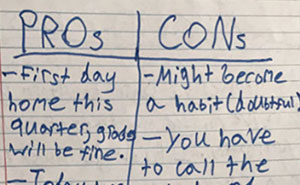 PROs
CONs
-First day
home this
quarter, grades
will be fine.
-Might become
a habit (doubtful)
-You have
to call the